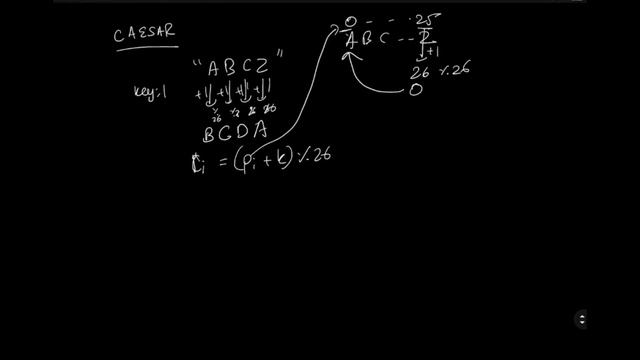 CAESAR
"ABCZ"
key:1
+1 +1 +1 +1
% 26 % 26
BCDA
Ci = (Pi + k) % 26
0 - - - 25
A B C - - Z
+1
26 % 26
0